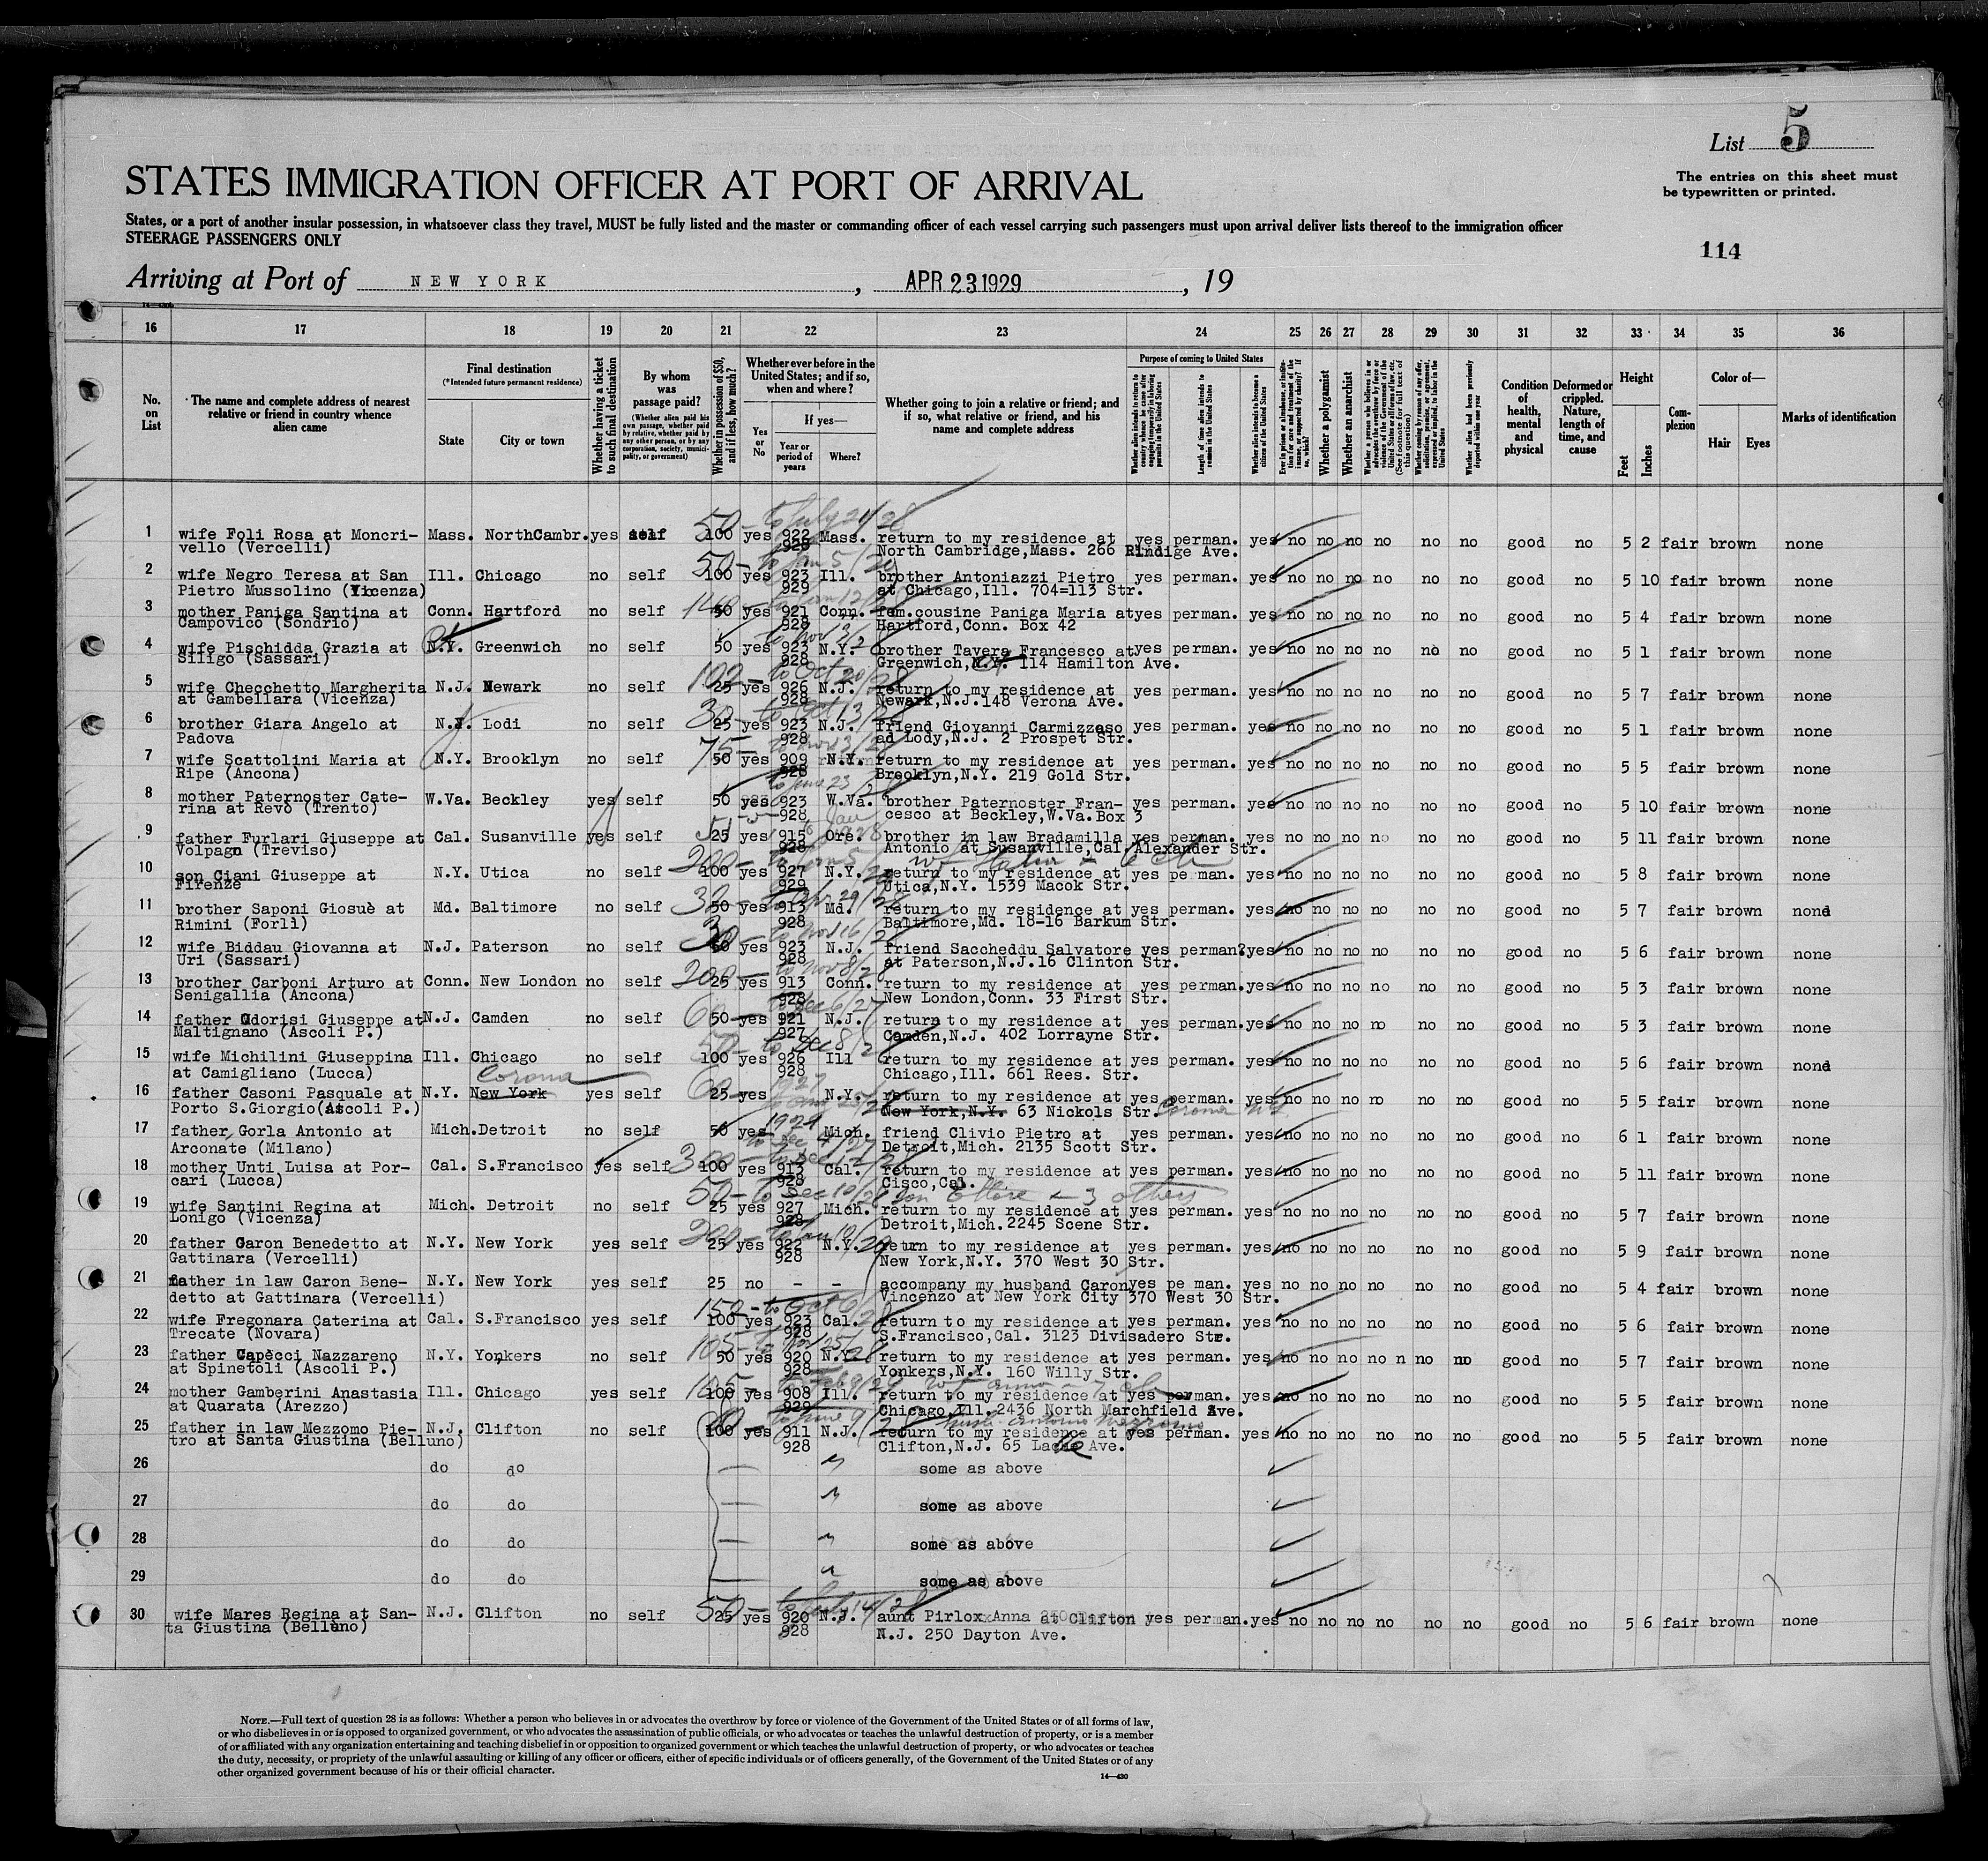 List 5
The entries on this sheet must
be typewritten or printed.
STATES IMMIGRATION OFFICER AT PORT OF ARRIVAL
States, or a port of another insular possession, in whatsoever class they travel, MUST be fully listed and the master or commanding officer of each vessel carrying such passengers must upon arrival deliver lists thereof to the immigration officer
STEERAGE PASSENGERS ONLY
114
Arriving at Port of NEW YORK, APR 23 1929, 19
16 17 18 19 20 21 22 23 24 25 26 27 28 29 30 31 32 33 34 35 36
No. on List
The name and complete address of nearest relative or friend in country whence alien came
Final destination
(*Intended future permanent residence)
State
City or town
Whether having a ticket to such final destination
By whom was passage paid?
(Whether alien paid his own passage, whether paid by relative, whether paid by any other person, or by any corporation, society, municipality, or government)
Whether in possession of $50, and if less, how much?
Whether ever before in the United States; and if so, when and where?
Yes or No
If yes—
Year or period of years
Where?
Whether going to join a relative or friend; and if so, what relative or friend, and his name and complete address
Purpose of coming to United States
Length of time alien intends to remain in the United States
Whether alien intends to become a citizen of the United States
Whether a polygamist
Whether an anarchist
Condition of health, mental and physical
Deformed or crippled. Nature, length of time, and cause
Height
Feet
Inches
Complexion
Color of—
Hair
Eyes
Marks of identification
1 wife Foli Rosa at Moncri- Mass. NorthCambr. yes self 50 100 yes 922 Mass. return to my residence at yes perman. yes no no no no no no good no 5 2 fair brown none
vello (Vercelli) 928 North Cambridge,Mass. 266 Rindige Ave.
2 wife Negro Teresa at San Ill. Chicago no self 50 100 yes 923 Ill. brother Antoniazzi Pietro yes perman. yes no no no no no no good no 5 10 fair brown none
Pietro Mussolino (Vicenza) 929 at Chicago,Ill. 704=113 Str.
3 mother Paniga Santina at Conn. Hartford no self 50 yes 921 Conn. fem.cousine Paniga Maria at yes perman. yes no no no no no no good no 5 4 fair brown none
Campovico (Sondrio) 928 Hartford,Conn. Box 42
4 wife Pischidda Grazia at N.Y. Greenwich no self 50 yes 923 N.Y. brother Tavera Francesco at yes perman. yes no no no no no no good no 5 1 fair brown none
Siligo (Sassari) 928 Greenwich,N.Y. 114 Hamilton Ave.
5 wife Checchetto Margherita N.J. Newark no self 102 25 yes 926 N.J. return to my residence at yes perman. yes no no no no no no good no 5 7 fair brown none
at Gambellara (Vicenza) 928 Newark,N.J.148 Verona Ave.
6 brother Giara Angelo at Lodi no self 30 25 yes 923 N.J. friend Giovanni Carmizzaso yes perman. yes no no no no no no good no 5 1 fair brown none
Padova 928 ad Lody,N.J. 2 Prospet Str.
7 wife Scattolini Maria at N.Y. Brooklyn no self 75 50 yes 909 N.Y. return to my residence at yes perman. yes no no no no no no good no 5 5 fair brown none
Ripe (Ancona) 928 Brooklyn,N.Y. 219 Gold Str.
8 mother Paternoster Cate- W.Va. Beckley yes self 50 yes 923 W.Va. brother Paternoster Fran- yes perman. yes no no no no no no good no 5 10 fair brown none
rina at Revò (Trento) 928 cesco at Beckley,W.Va.Box 3
9 father Furlari Giuseppe at Cal. Susanville yes self 25 yes 915 Ore. brother in law Bradamilla yes perman. yes no no no no no no good no 5 11 fair brown none
Volpago (Treviso) 928 Antonio at Susanville,Cal.Alexander Str.
10 son Ciani Giuseppe at N.Y. Utica no self 200 100 yes 927 N.Y. return to my residence at yes pe man. yes no no no no no no good no 5 8 fair brown none
Firenze 929 Utica,N.Y. 1539 Macok Str.
11 brother Saponi Giosuè at Md. Baltimore no self 50 yes 913 Md. return to my residence at yes perman. yes no no no no no no good no 5 7 fair brown none
Rimini (Forlì) 928 Baltimore,Md. 18-16 Barkum Str.
12 wife Biddau Giovanna at N.J. Paterson no self yes 923 N.J. friend Saccheddu Salvatore yes perman. yes no no no no no no good no 5 6 fair brown none
Uri (Sassari) 928 at Paterson,N.J.16 Clinton Str.
13 brother Carboni Arturo at Conn. New London no self 200 25 yes 913 Conn. return to my residence at yes perman.yes no no no no no no good no 5 3 fair brown none
Senigallia (Ancona) 928 New London,Conn. 33 First Str.
14 father Odorisi Giuseppe at N.J. Camden no self 50 yes 921 N.J. return to my residence at yes perman.yes no no no no no no good no 5 3 fair brown none
Maltignano (Ascoli P.) 927 Camden,N.J. 402 Lorrayne Str.
15 wife Michilini Giuseppina Ill. Chicago no self 50 100 yes 926 Ill return to my residence at yes perman. yes no no no no no no good no 5 6 fair brown none
at Camigliano (Lucca) 928 Chicago,Ill. 661 Rees. Str.
Corona
16 father Casoni Pasquale at N.Y. New York yes self 25 yes 1927 N.Y. return to my residence at yes perman. yes no no no no no no good no 5 5 fair brown none
Porto S.Giorgio(Ascoli P.) New York,N.Y. 63 Nickols Str. Corona
17 father Gorla Antonio at Mich.Detroit no self 50 yes Mich. friend Clivio Pietro at yes perman. yes no no no no no no good no 6 1 fair brown none
Arconate (Milano) Detroit,Mich. 2135 Scott Str.
18 mother Unti Luisa at Por- Cal. S.Francisco yes self 300 100 yes 913 Cal. return to my residence at yes perman. yes no no no no no no good no 5 11 fair brown none
cari (Lucca) 928 Cisco,Cal.
19 wife Santini Regina at Mich. Detroit no self 50 25 yes 927 Mich. return to my residence at yes perman. yes no no no no no no good no 5 7 fair brown none
Lonigo (Vicenza) 928 Detroit,Mich.2245 Scene Str.
20 father Caron Benedetto at N.Y. New York yes self 200 25 yes 922 N.Y. return to my residence at yes perman. yes no no no no no no good no 5 9 fair brown none
Gattinara (Vercelli) 928 New York,N.Y. 370 West 30 Str.
21 father in law Caron Bene- N.Y. New York yes self 25 no - - accompany my husband Caron yes pe man. yes no no no no no no good no 5 4 fair brown none
detto at Gattinara (Vercelli) Vincenzo at New York City 370 West 30 Str.
22 wife Fregonara Caterina at Cal. S.Francisco yes self 150 100 yes 923 Cal. return to my residence at yes perman. yes no no no no no no good no 5 6 fair brown none
Trecate (Novara) 928 S.Francisco,Cal. 3123 Divisadero Str.
23 father Capècci Nazzareno N.Y. Yonkers no self 105 50 yes 920 N.Y. return to my residence at yes perman. yes no no no no n no no good no 5 7 fair brown none
at Spinetoli (Ascoli P.) 928 Yonkers,N.Y. 160 Willy Str.
24 mother Gamberini Anastasia Ill. Chicago yes self 100 yes 908 Ill. return to my residence at yes perman. yes no no no no no no good no 5 5 fair brown none
at Quarata (Arezzo) 929 Chicago,Ill.2436 North Marchfield Ave.
25 father in law Mezzomo Pie- N.J. Clifton no self 100 yes 911 N.J. return to my residence at yes perman. yes no no no no no no good no 5 5 fair brown none
tro at Santa Giustina (Belluno) 928 Clifton,N.J. 65 Ave.
26 do do some as above
27 do do some as above
28 do do some as above
29 do do some as above
30 wife Mares Regina at San- N.J. Clifton no self 50 25 yes 920 N.J. aunt Pirlox Anna at Clifton yes perman.yes no no no no no no good no 5 6 fair brown none
ta Giustina (Belluno) 928 N.J. 250 Dayton Ave.
NOTE.—Full text of question 28 is as follows: Whether a person who believes in or advocates the overthrow by force or violence of the Government of the United States or of all forms of law,
or who disbelieves in or is opposed to organized government, or who advocates the assassination of public officials, or who advocates or teaches the unlawful destruction of property, or is a member
of or affiliated with any organization entertaining and teaching disbelief in or opposition to organized government or which teaches the unlawful destruction of property, or who advocates or teaches
the duty, necessity, or propriety of the unlawful assaulting or killing of any officer or officers, either of specific individuals or of officers generally, of the Government of the United States or of any
other organized government because of his or their official character.
14—430